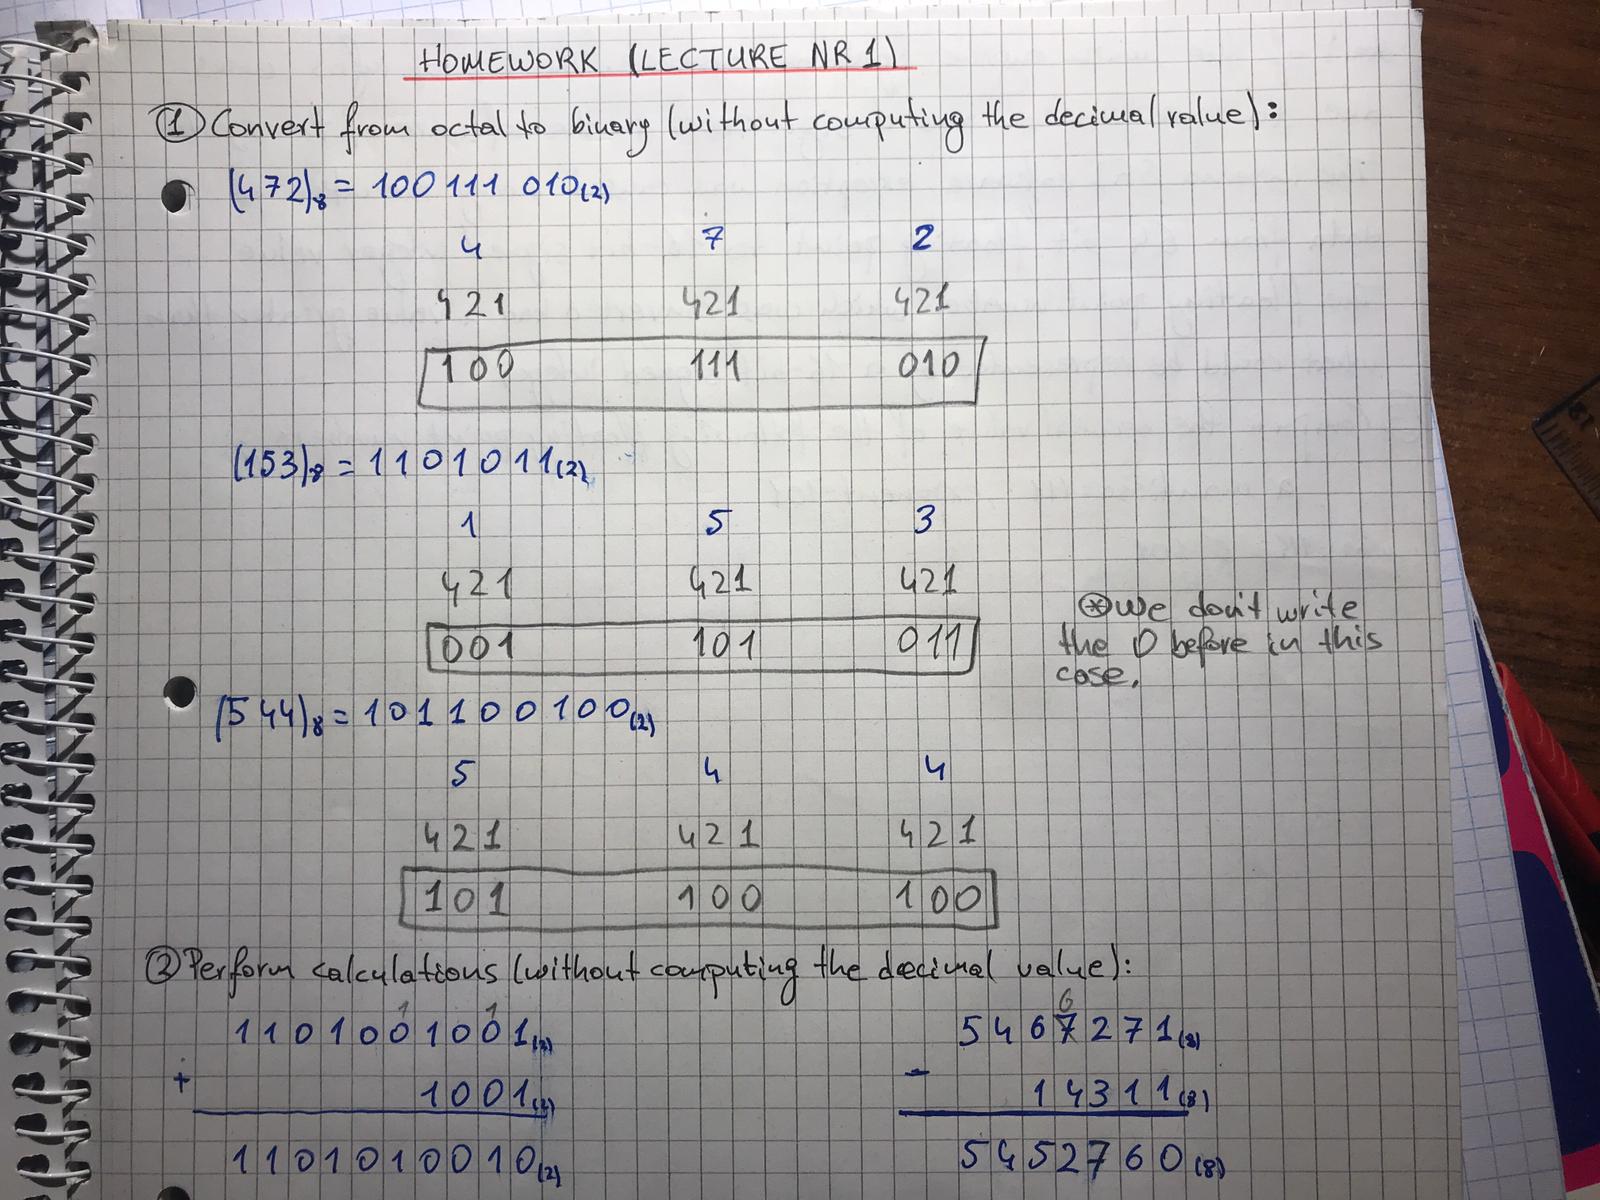 HOMEWORK (LECTURE NR 1)
① Convert from octal to binary (without computing the decimal value):
(472)₈ = 100 111 010(2)
4 7 2
421 421 421
100 111 010
(153)₈ = 1101011(2)
1 5 3
421 421 421
001 101 011
⊛ we don't write
the 0 before in this
case.
(544)₈ = 101100100(2)
5 4 4
421 421 421
101 100 100
② Perform calculations (without computing the decimal value):
1 1
1101001001(2)
+ 1001(2)
1101010010(2)
6
5467271(8)
- 14311(8)
5452760(8)